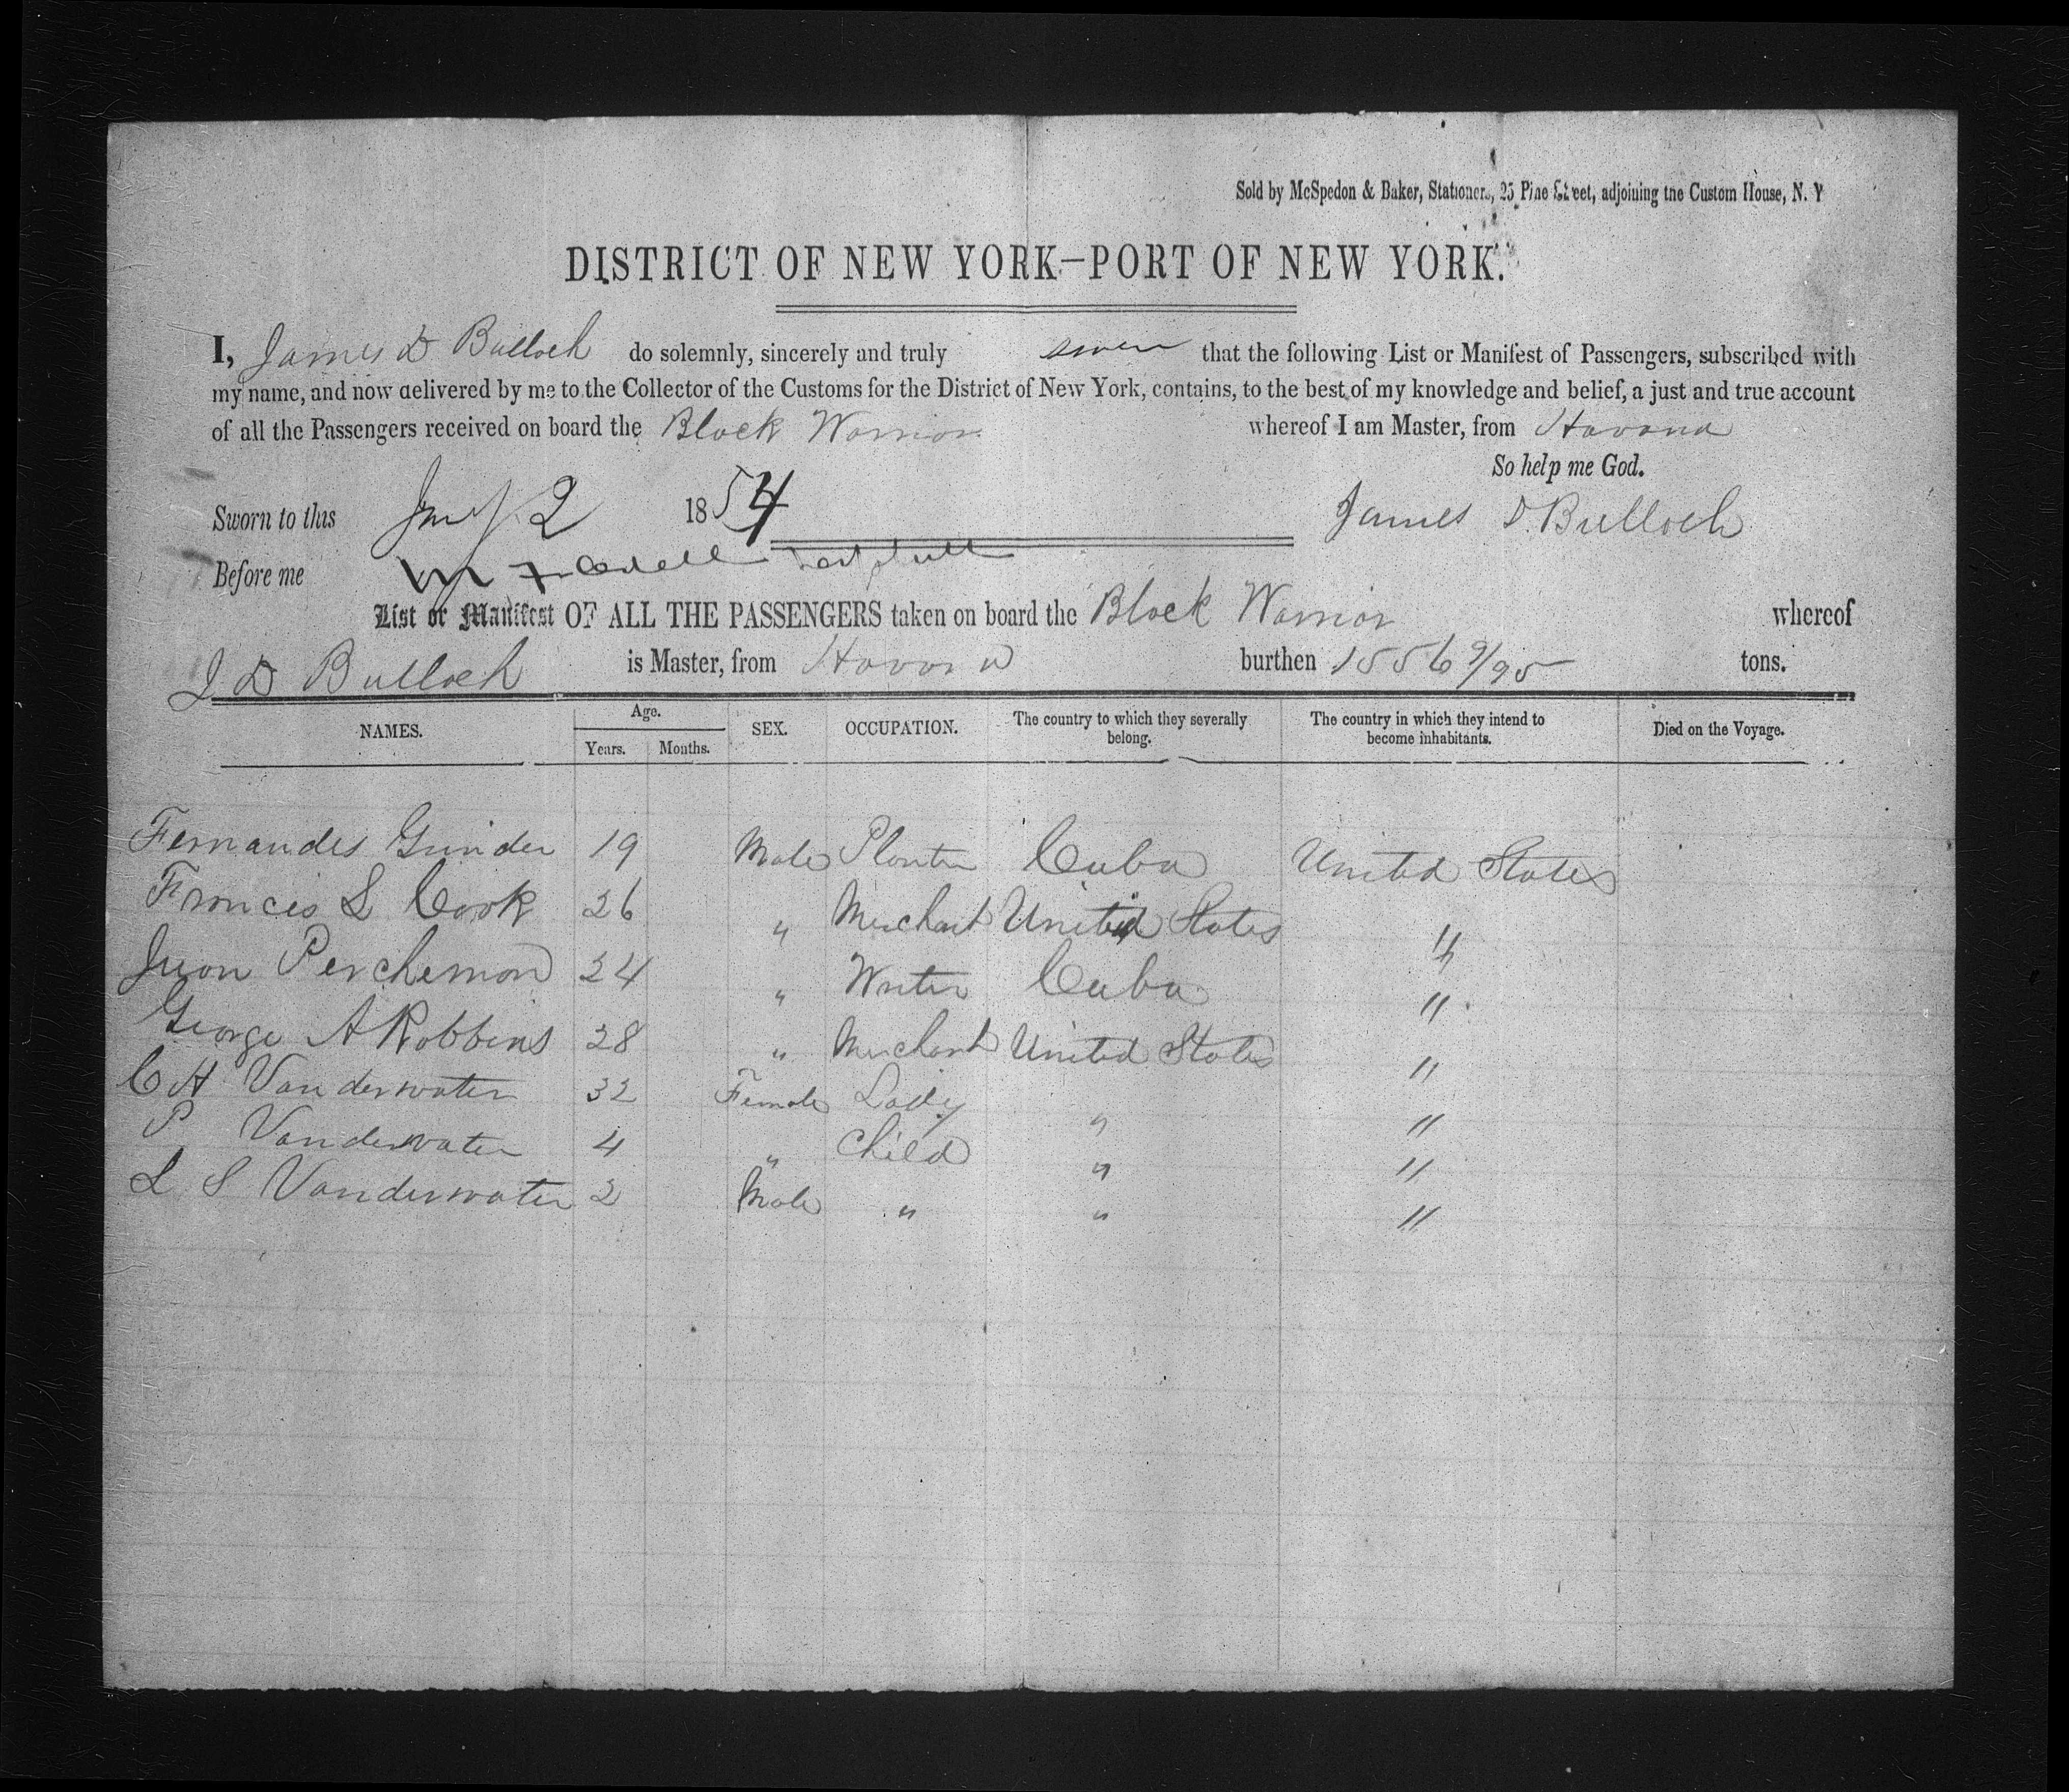 Sold by McSpedon & Baker, Stationers, 25 Pine Street, adjoining the Custom House, N. Y
DISTRICT OF NEW YORK—PORT OF NEW YORK.
I, James D Bulloch do solemnly, sincerely and truly swear that the following List or Manifest of Passengers, subscribed with
my name, and now delivered by me to the Collector of the Customs for the District of New York, contains, to the best of my knowledge and belief, a just and true account
of all the Passengers received on board the Black Warrior whereof I am Master, from Havana
So help me God.
Sworn to this Jany 2 1854 James D Bulloch
Before me
List or Manifest OF ALL THE PASSENGERS taken on board the Black Warrior whereof
J D Bulloch is Master, from Havana burthen 1556 9/95 tons.
NAMES. Age. Years. Months. SEX. OCCUPATION. The country to which they severally belong. The country in which they intend to become inhabitants. Died on the Voyage.
Fernandes Grinder 19 Male Planter Cuba United States
Francis L Cook 26 " Merchant United States "
Juan Perchemon 24 " Writer Cuba "
George A Robbins 28 " Merchant United States "
C H Vanderwater 32 Female Lady " "
P Vanderwater 4 " Child " "
L S Vanderwater 2 Male " " "